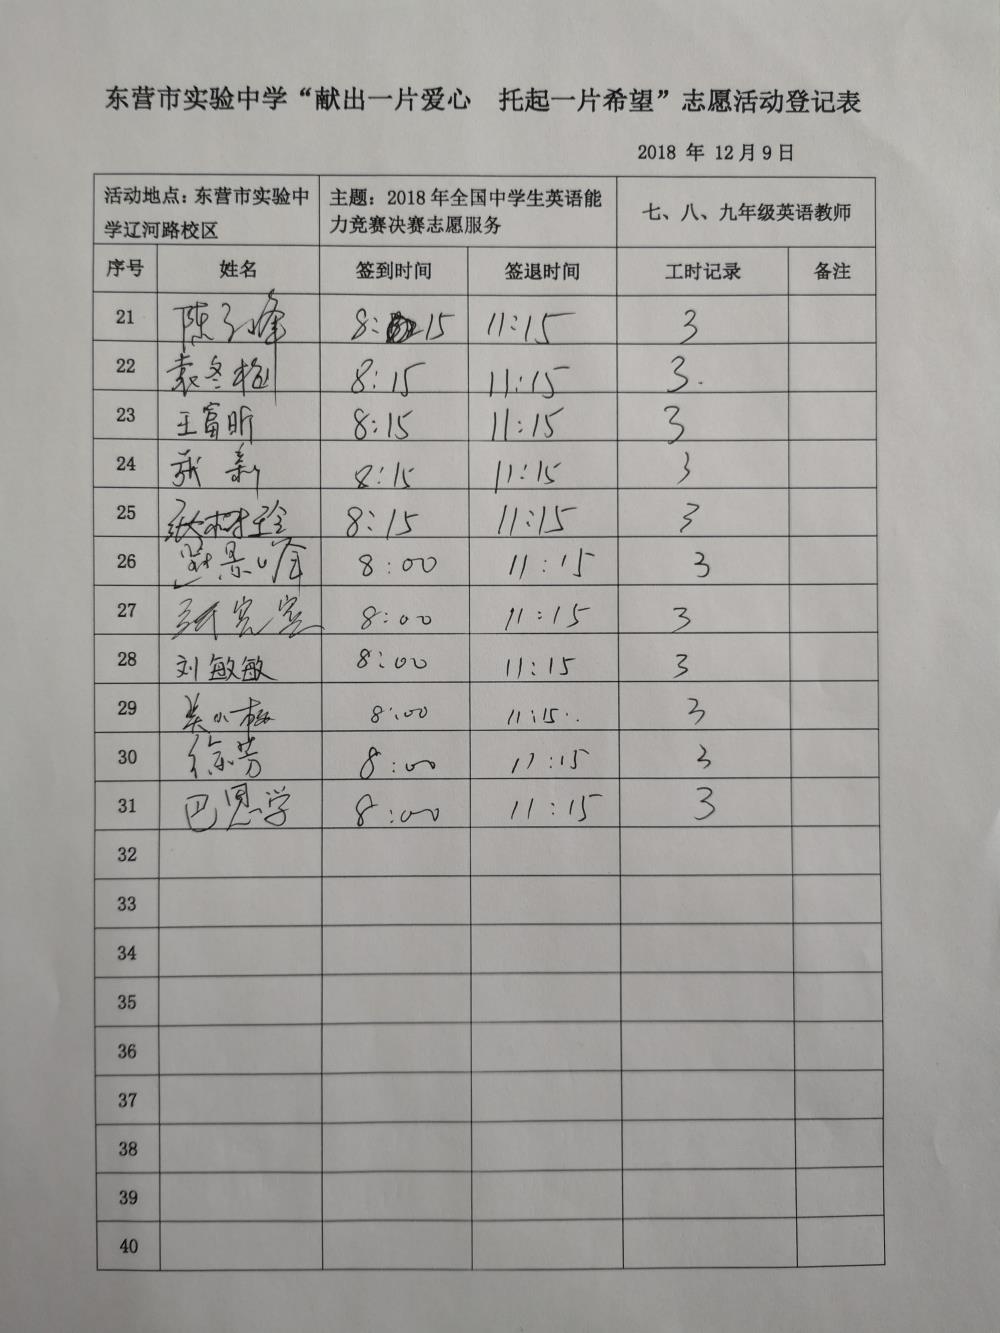 东营市实验中学“献出一片爱心 托起一片希望”志愿活动登记表
2018 年 12月9日
活动地点：东营市实验中学辽河路校区 主题：2018年全国中学生英语能力竞赛决赛志愿服务 七、八、九年级英语教师
序号 姓名 签到时间 签退时间 工时记录 备注
21 8:15 11:15 3
22 袁冬梅 8:15 11:15 3.
23 王富昕 8:15 11:15 3
24 8:15 11:15 3
25 8:15 11:15 3
26 8:00 11:15 3
27 8:00 11:15 3
28 刘敏敏 8:00 11:15 3
29 吴小梅 8:00 11:15 3
30 徐芳 8:00 11:15 3
31 巴恩学 8:00 11:15 3
32
33
34
35
36
37
38
39
40